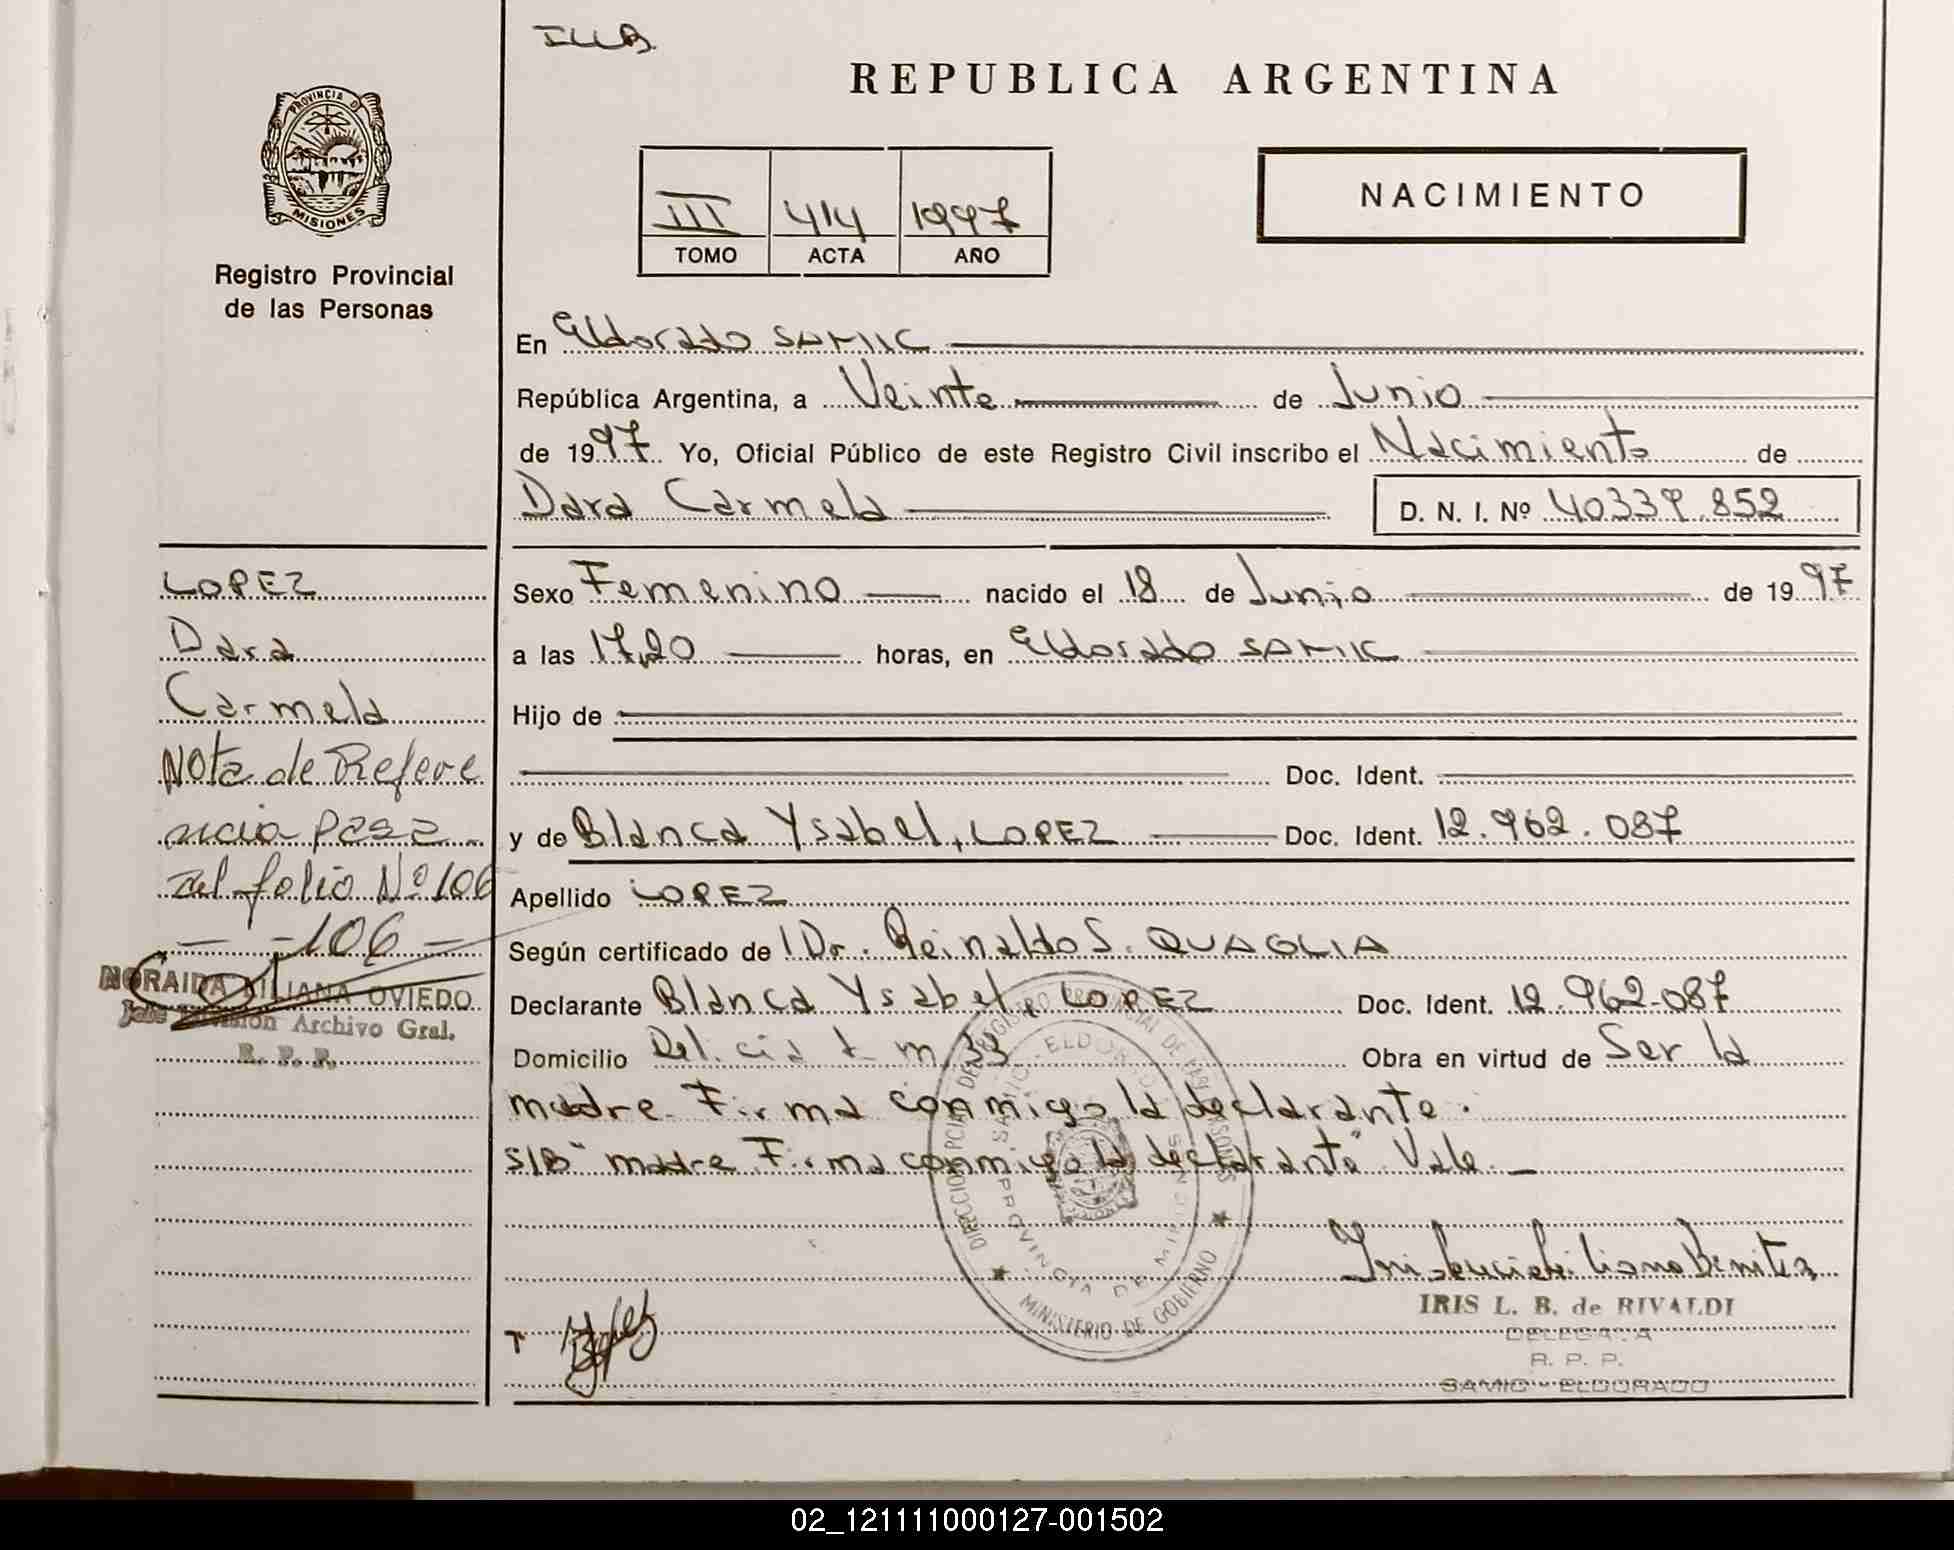 ILLB
REPUBLICA ARGENTINA
PROVINCIA D
MISIONES
Registro Provincial
de las Personas
III 414 1997
TOMO ACTA AÑO
NACIMIENTO
En Eldorado SAMIC
República Argentina, a Veinte de Junio
de 1997 Yo, Oficial Público de este Registro Civil inscribo el Nacimiento de
Dara Carmela D. N. I. Nº 40339.852
LOPEZ
Dara
Carmela
Nota de Refere
ncia pasa
al folio Nº 106
- -106 -
NORAIDA LILIANA OVIEDO
Jefe División Archivo Gral.
R. P. P.
Sexo Femenino nacido el 18 de Junio de 1997
a las 17,20 horas, en Eldorado SAMIC
Hijo de
Doc. Ident.
y de Blanca Ysabel, LOPEZ Doc. Ident. 12.962.087
Apellido LOPEZ
Según certificado de l Dr. Reinaldo S. QUAGLIA
Declarante Blanca Ysabel, LOPEZ Doc. Ident. 12.962.087
Domicilio Delicia km 33 Obra en virtud de Ser la
madre. Firma conmigo la declarante.
S/B "madre Firma conmigo la declarante" Vale.
DIRECCION PCIAL DEL REGISTRO PROVINCIAL DE PERSONAS
MINISTERIO DE GOBIERNO
SAMIC - ELDORADO
PROVINCIA DE MISIONES
IRIS L. B. de RIVALDI
DELEGADA
R. P. P.
SAMIC - ELDORADO
02_121111000127-001502